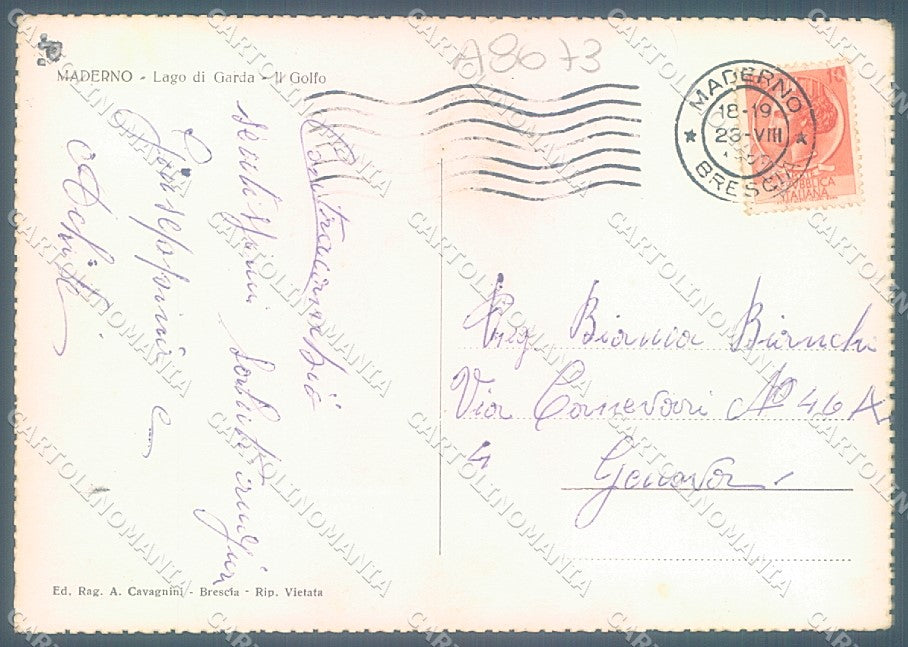 A8673
MADERNO - Lago di Garda - Il Golfo
MADERNO
18-19
23-VIII
BRESCIA
10
REPUBBLICA
ITALIANA
Contraccambio
sentitissimi
Giuseppina e
Bianca Bianchi
Via Canevari No 46 A
4
Genova
Ed. Rag. A. Cavagnini - Brescia - Rip. Vietata
CARTOLINOMANIA